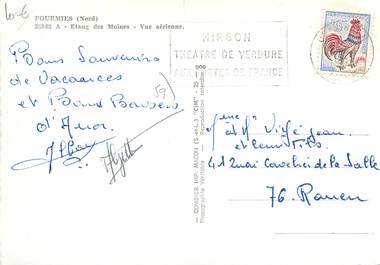 FOURMIES (Nord)
A - Etang des Moines - Vue aérienne.
Bons Souvenirs
de Vacances
et Bons Baisers
d'Anor
(59)
HIRSON
THEATRE DE VERDURE
AUX PORTES DE FRANCE
COMBIER IMP. MACON (S.-et-L.) "CIM"
Photographie Véritable - Reproduction Interdite
Mme et Mr Jean
et leur fils
41 Quai Cavelier de la Salle
76. Rouen